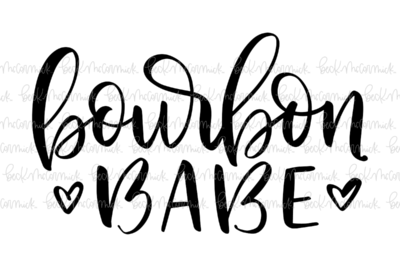 bourbon
BABE